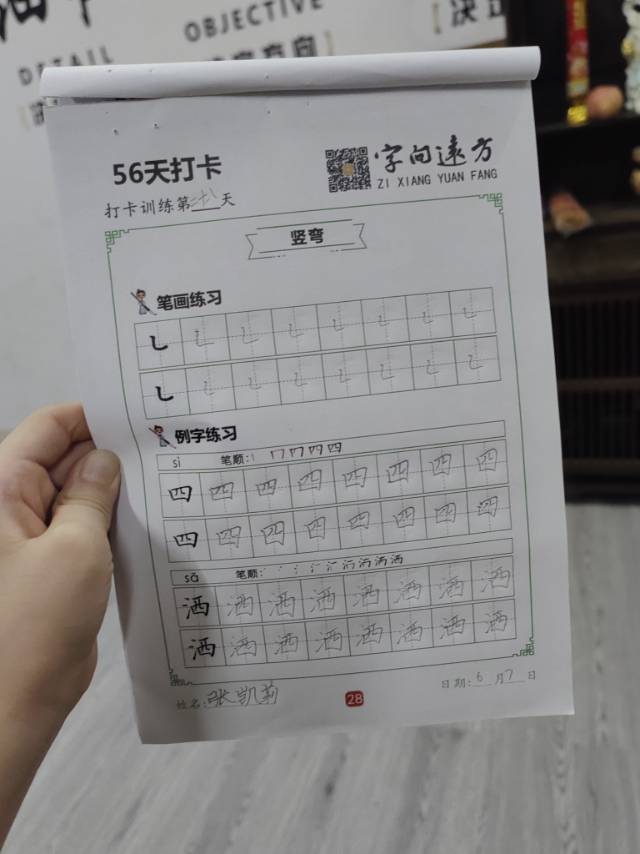 DETAIL
OBJECTIVE
56天打卡
字向远方
ZI XIANG YUAN FANG
打卡训练第二十八天
竖弯
笔画练习
㇄ ㇄ ㇄ ㇄ ㇄ ㇄ ㇄ ㇄
㇄ ㇄ ㇄ ㇄ ㇄ ㇄ ㇄ ㇄
例字练习
sì 笔顺:
四 四 四 四 四 四 四 四
四 四 四 四 四 四 四 四
sǎ 笔顺:
洒 洒 洒 洒 洒 洒 洒 洒
洒 洒 洒 洒 洒 洒 洒 洒
姓名:张凯莉 28 日期:6月7日